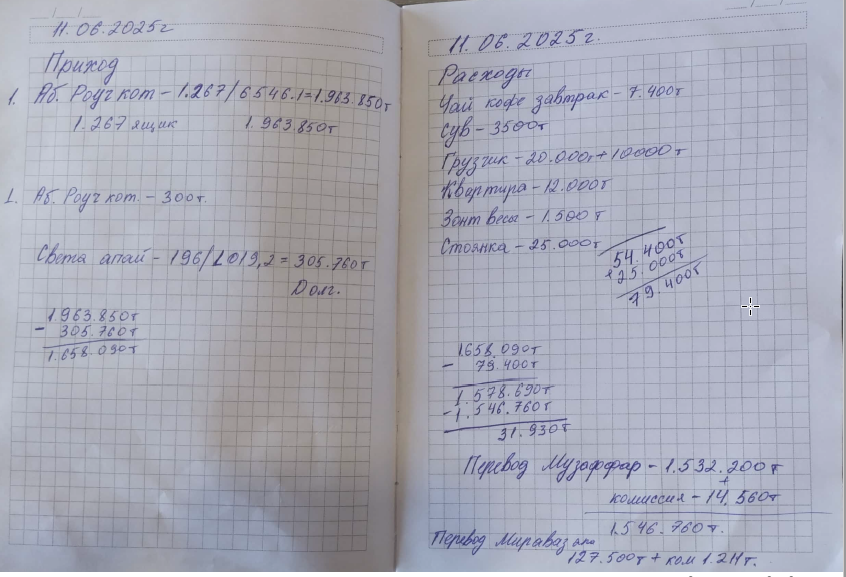 11.06.2025г
Приход
1. Аб. Роуч кот - 1.267/6546.1=1.963.850т
1.267 ящик 1.963.850т
1. Аб. Роуч кот. - 300т.
Света апай - 196/1019,2 = 305.760т
Долг.
1.963.850т
- 305.760т
1.658.090т
11.06.2025г.
Расходы
Чай кофе завтрак - 7.400т
Сув - 3500т
Грузчик - 20.000т+10000т
Квартира - 12.000т
Зонт весы - 1.500т
Стоянка - 25.000т
54.400т
+25.000т
79.400т
1.658.090т
- 79.400т
1.578.690т
-1.546.760т
31.930т
Перевод Музаффар - 1.532.200т
+
комиссия - 14.560т
1.546.760т.
Перевод Мираваз
127.500т + ком 1.211т.